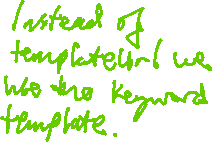 Instead of
template<int> we
use the keyword
template.